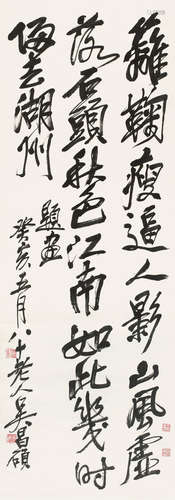 蘺鞠瘦逼人影山風虛
落石頭秋色江南如此幾時
侮去湖州
題畫
癸亥五月八十老人吳昌碩